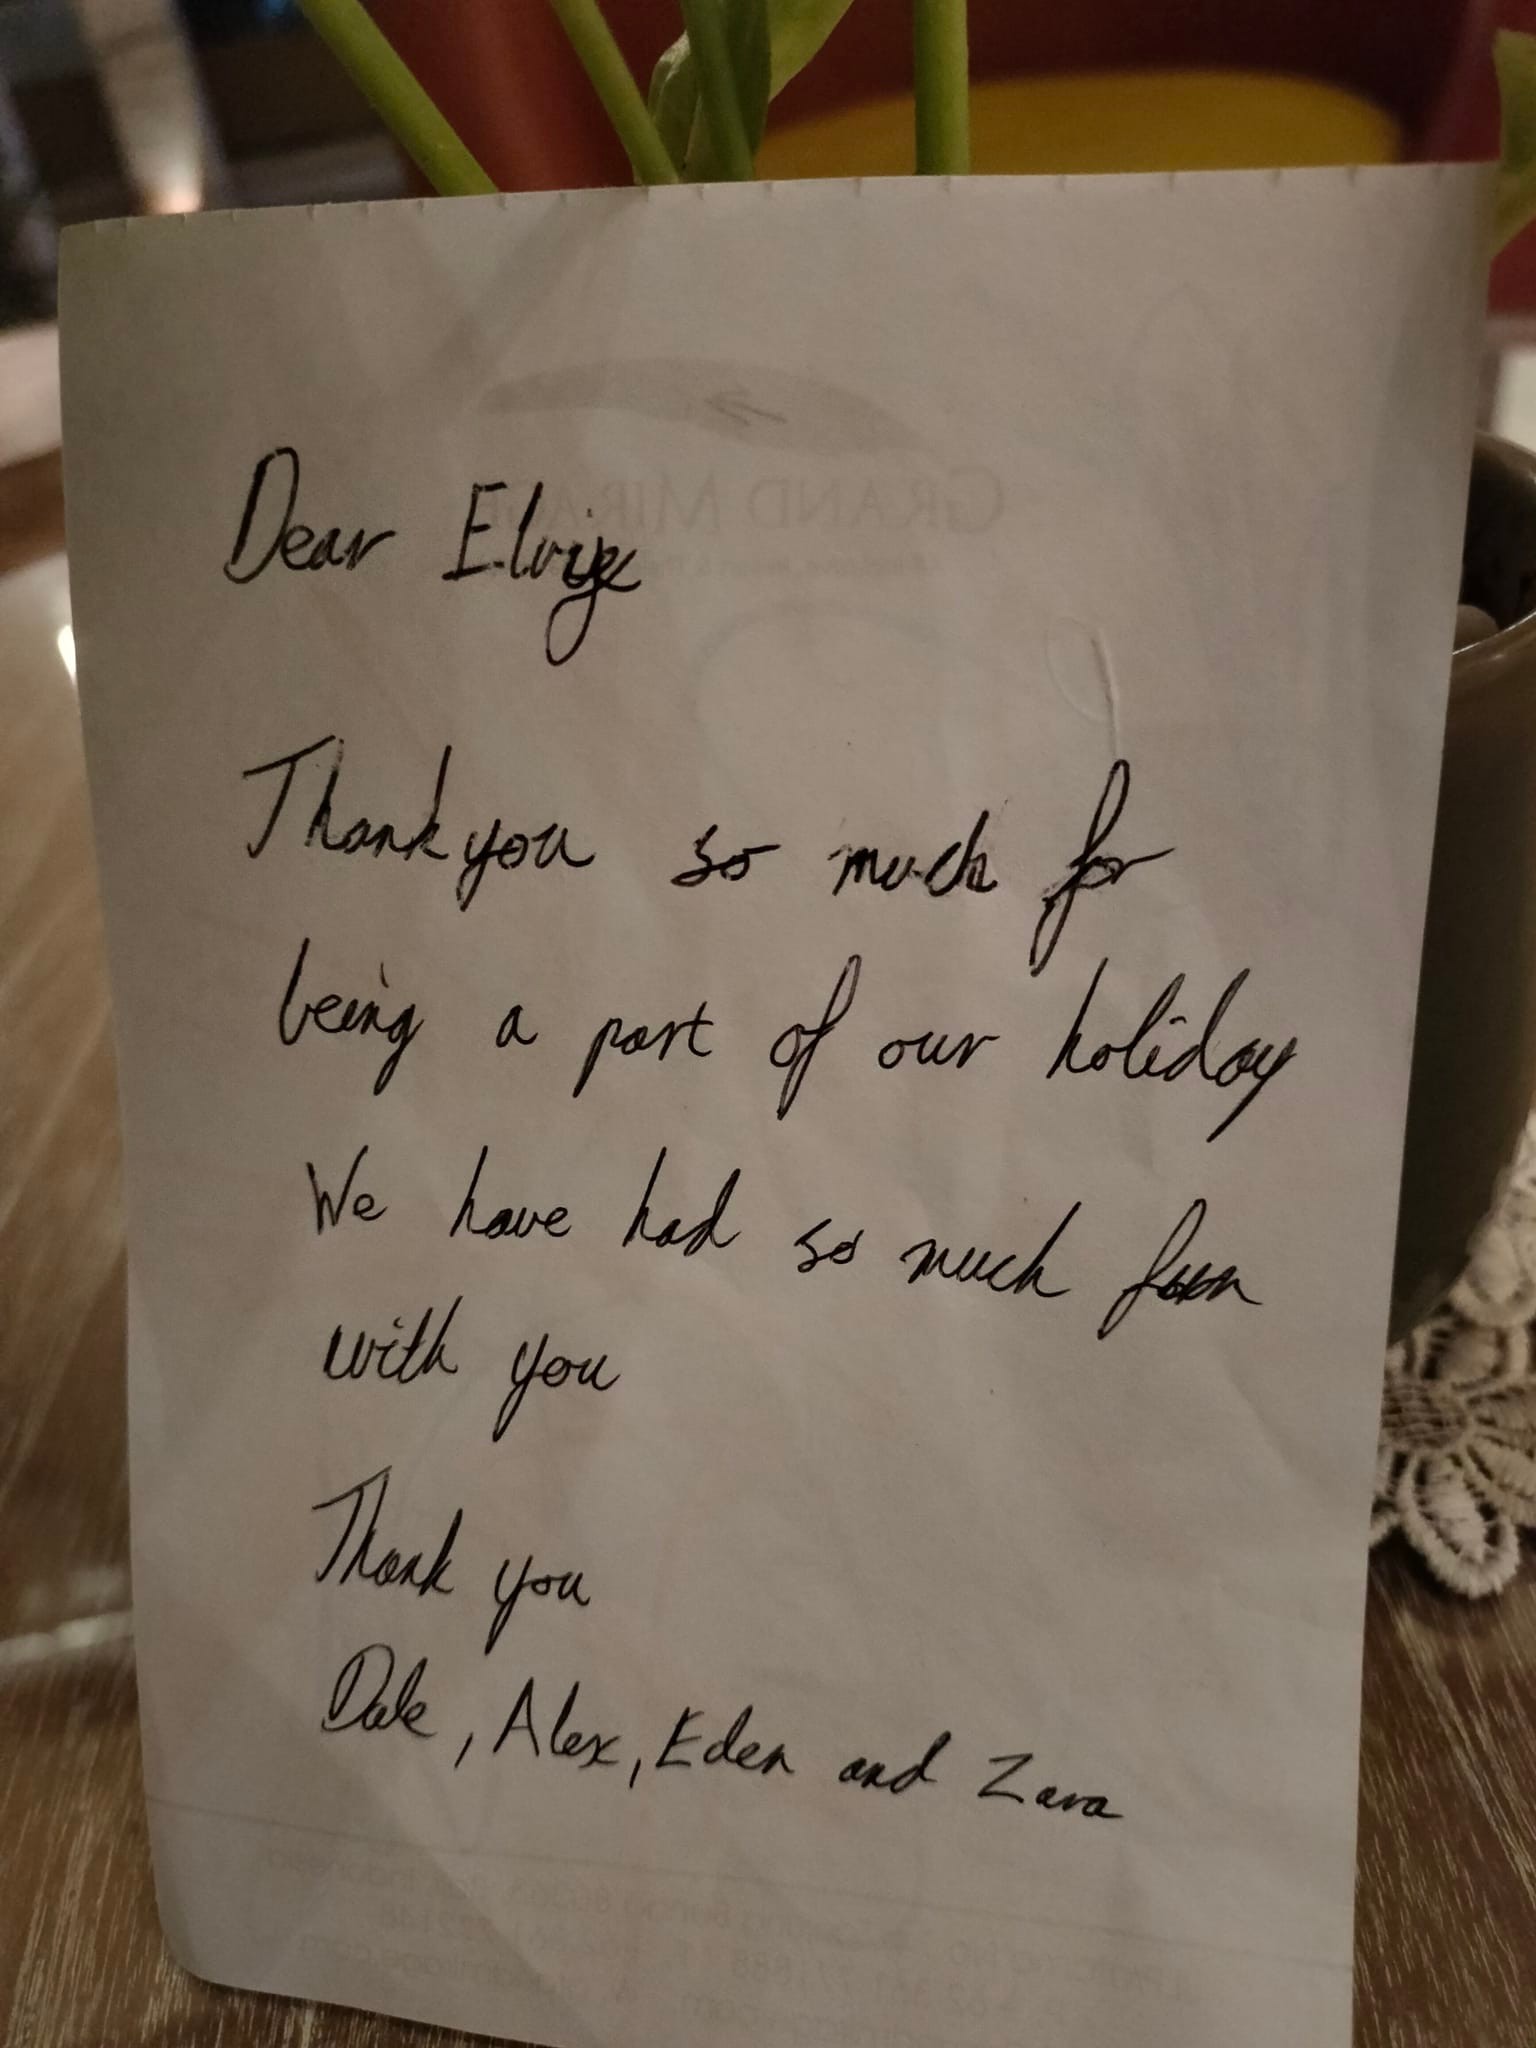 Dear
Thank you so much for
being a part of our holiday
We have had so much fun
with you
Thank you
Dale, Alex, Eden and Zara
GRAND MIRAGE